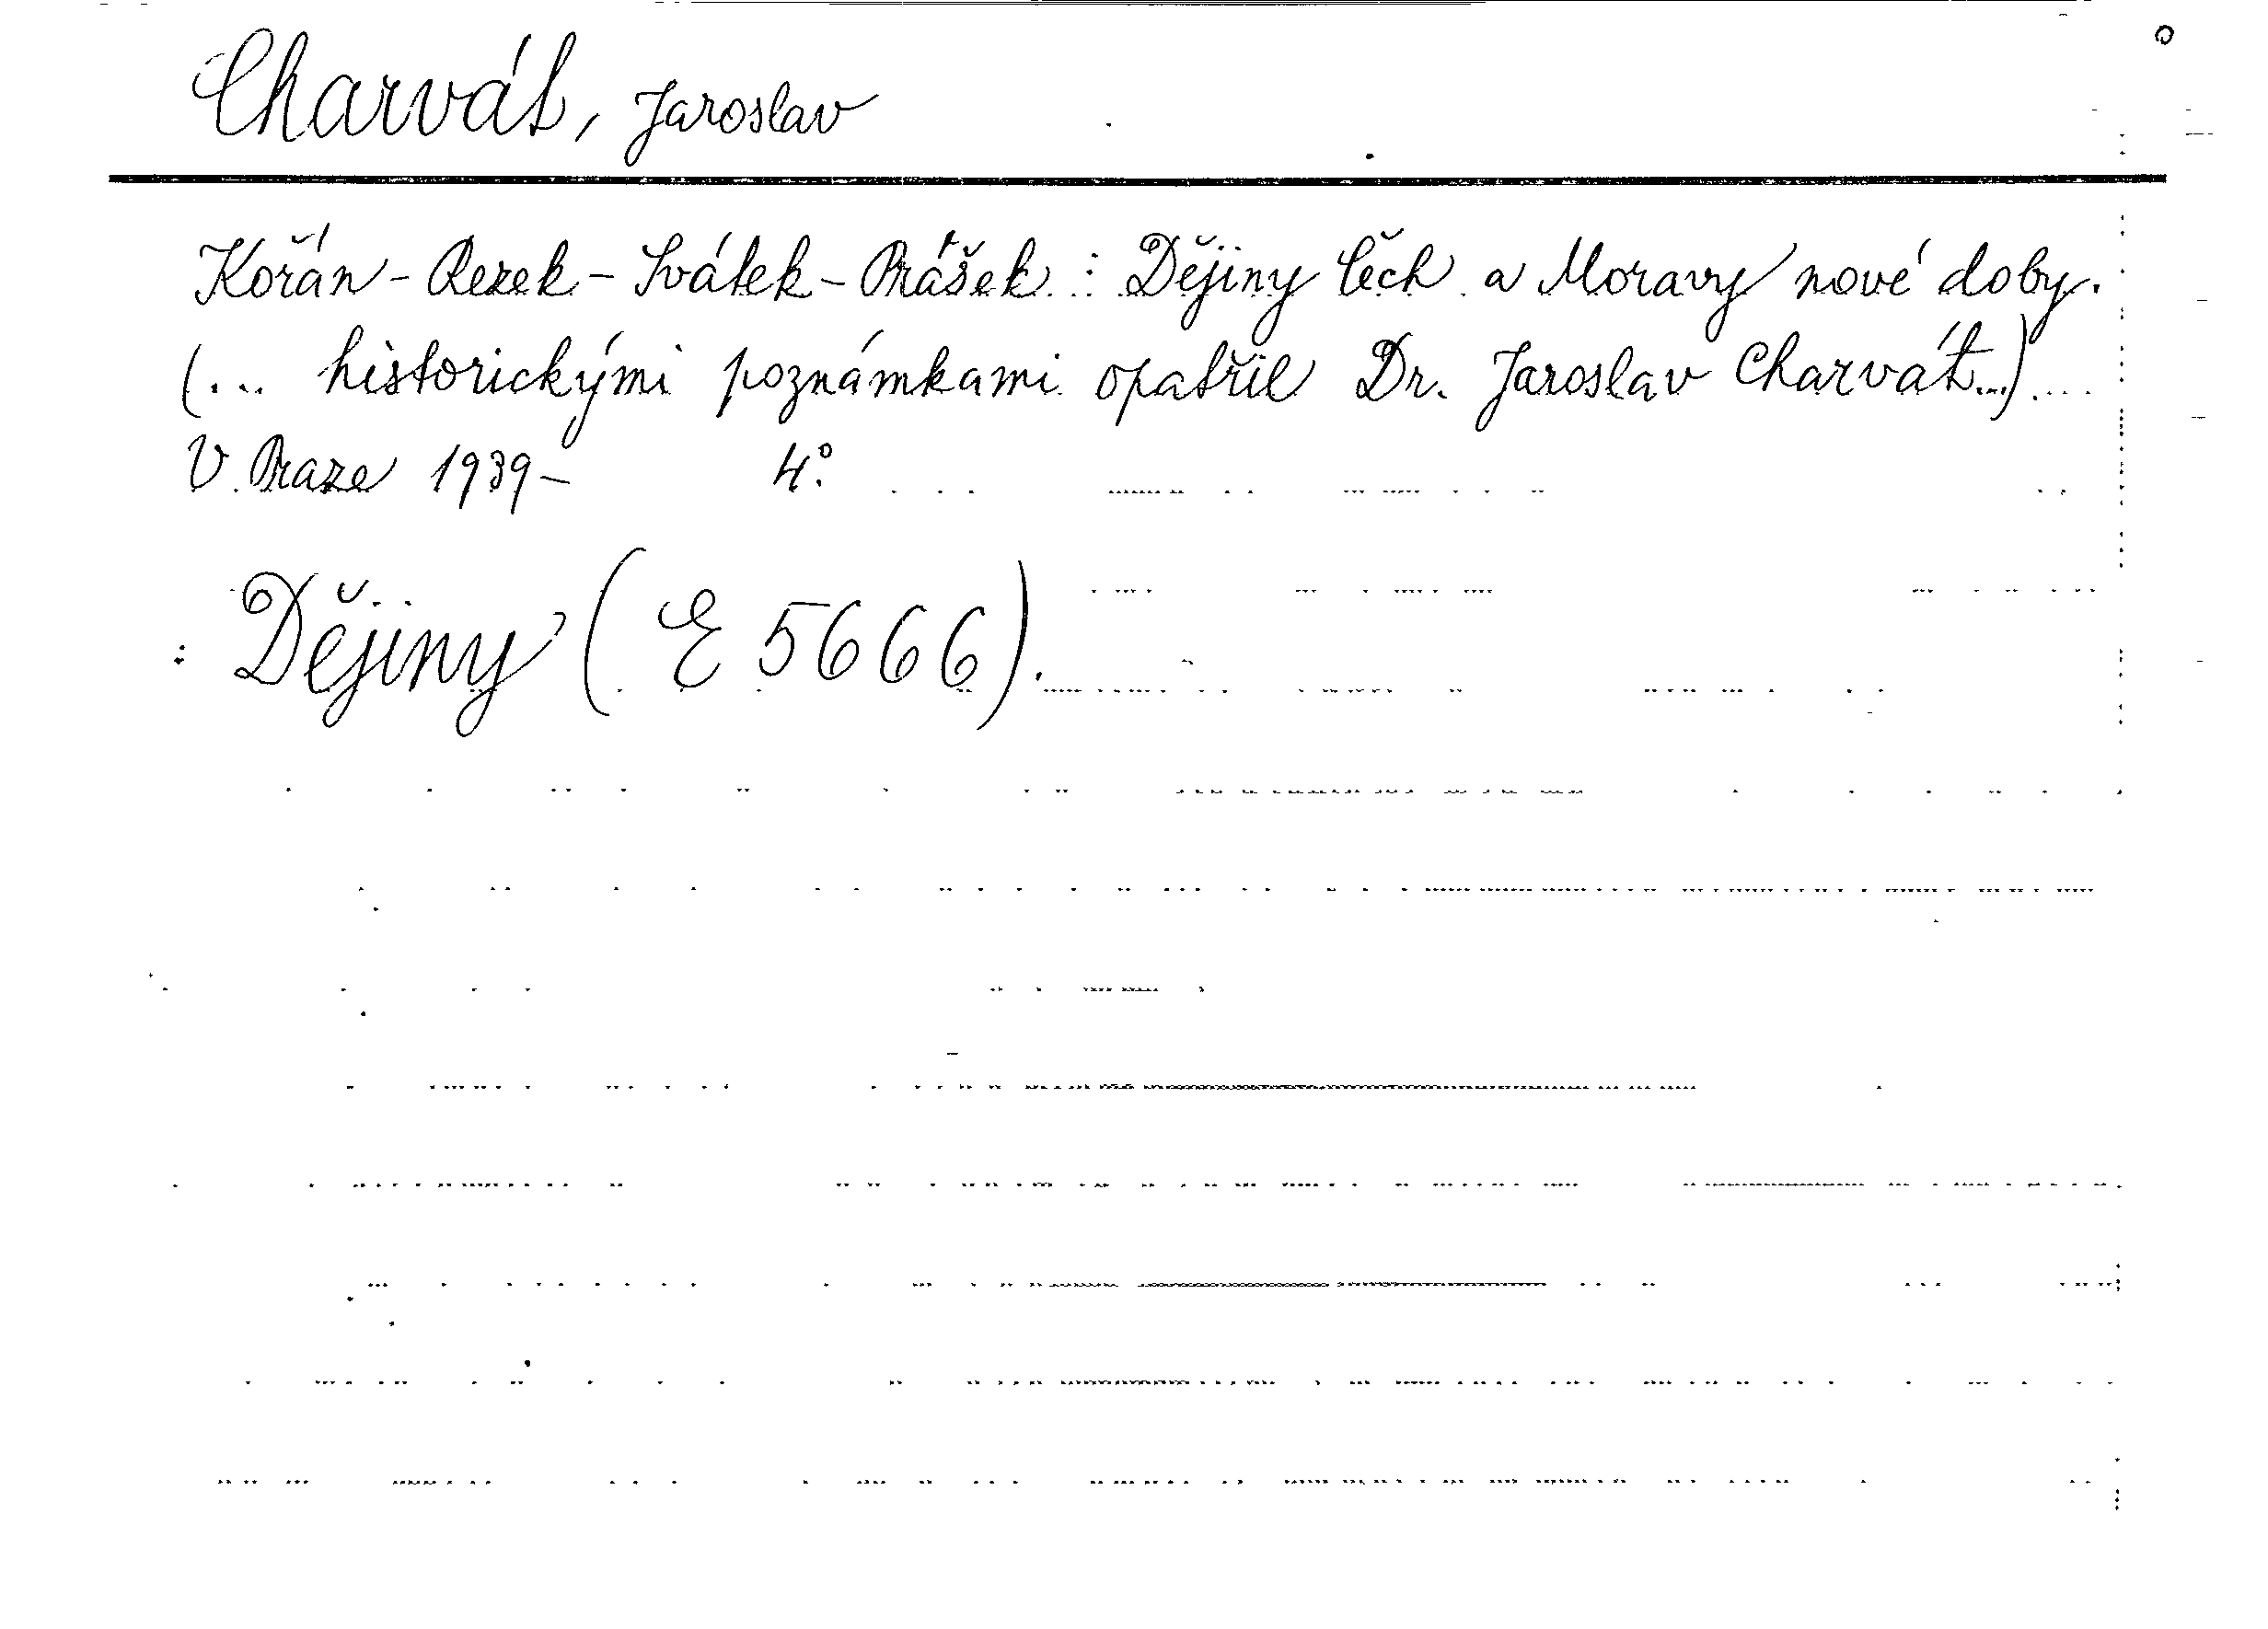 Charvát, Jaroslav
Kořán - Rezek - Svátek - Prášek : Dějiny Čech a Moravy nové doby.
(... historickými poznámkami opatřil Dr. Jaroslav Charvát...)...
V Praze 1939- 4°.
: Dějiny (E 5666).